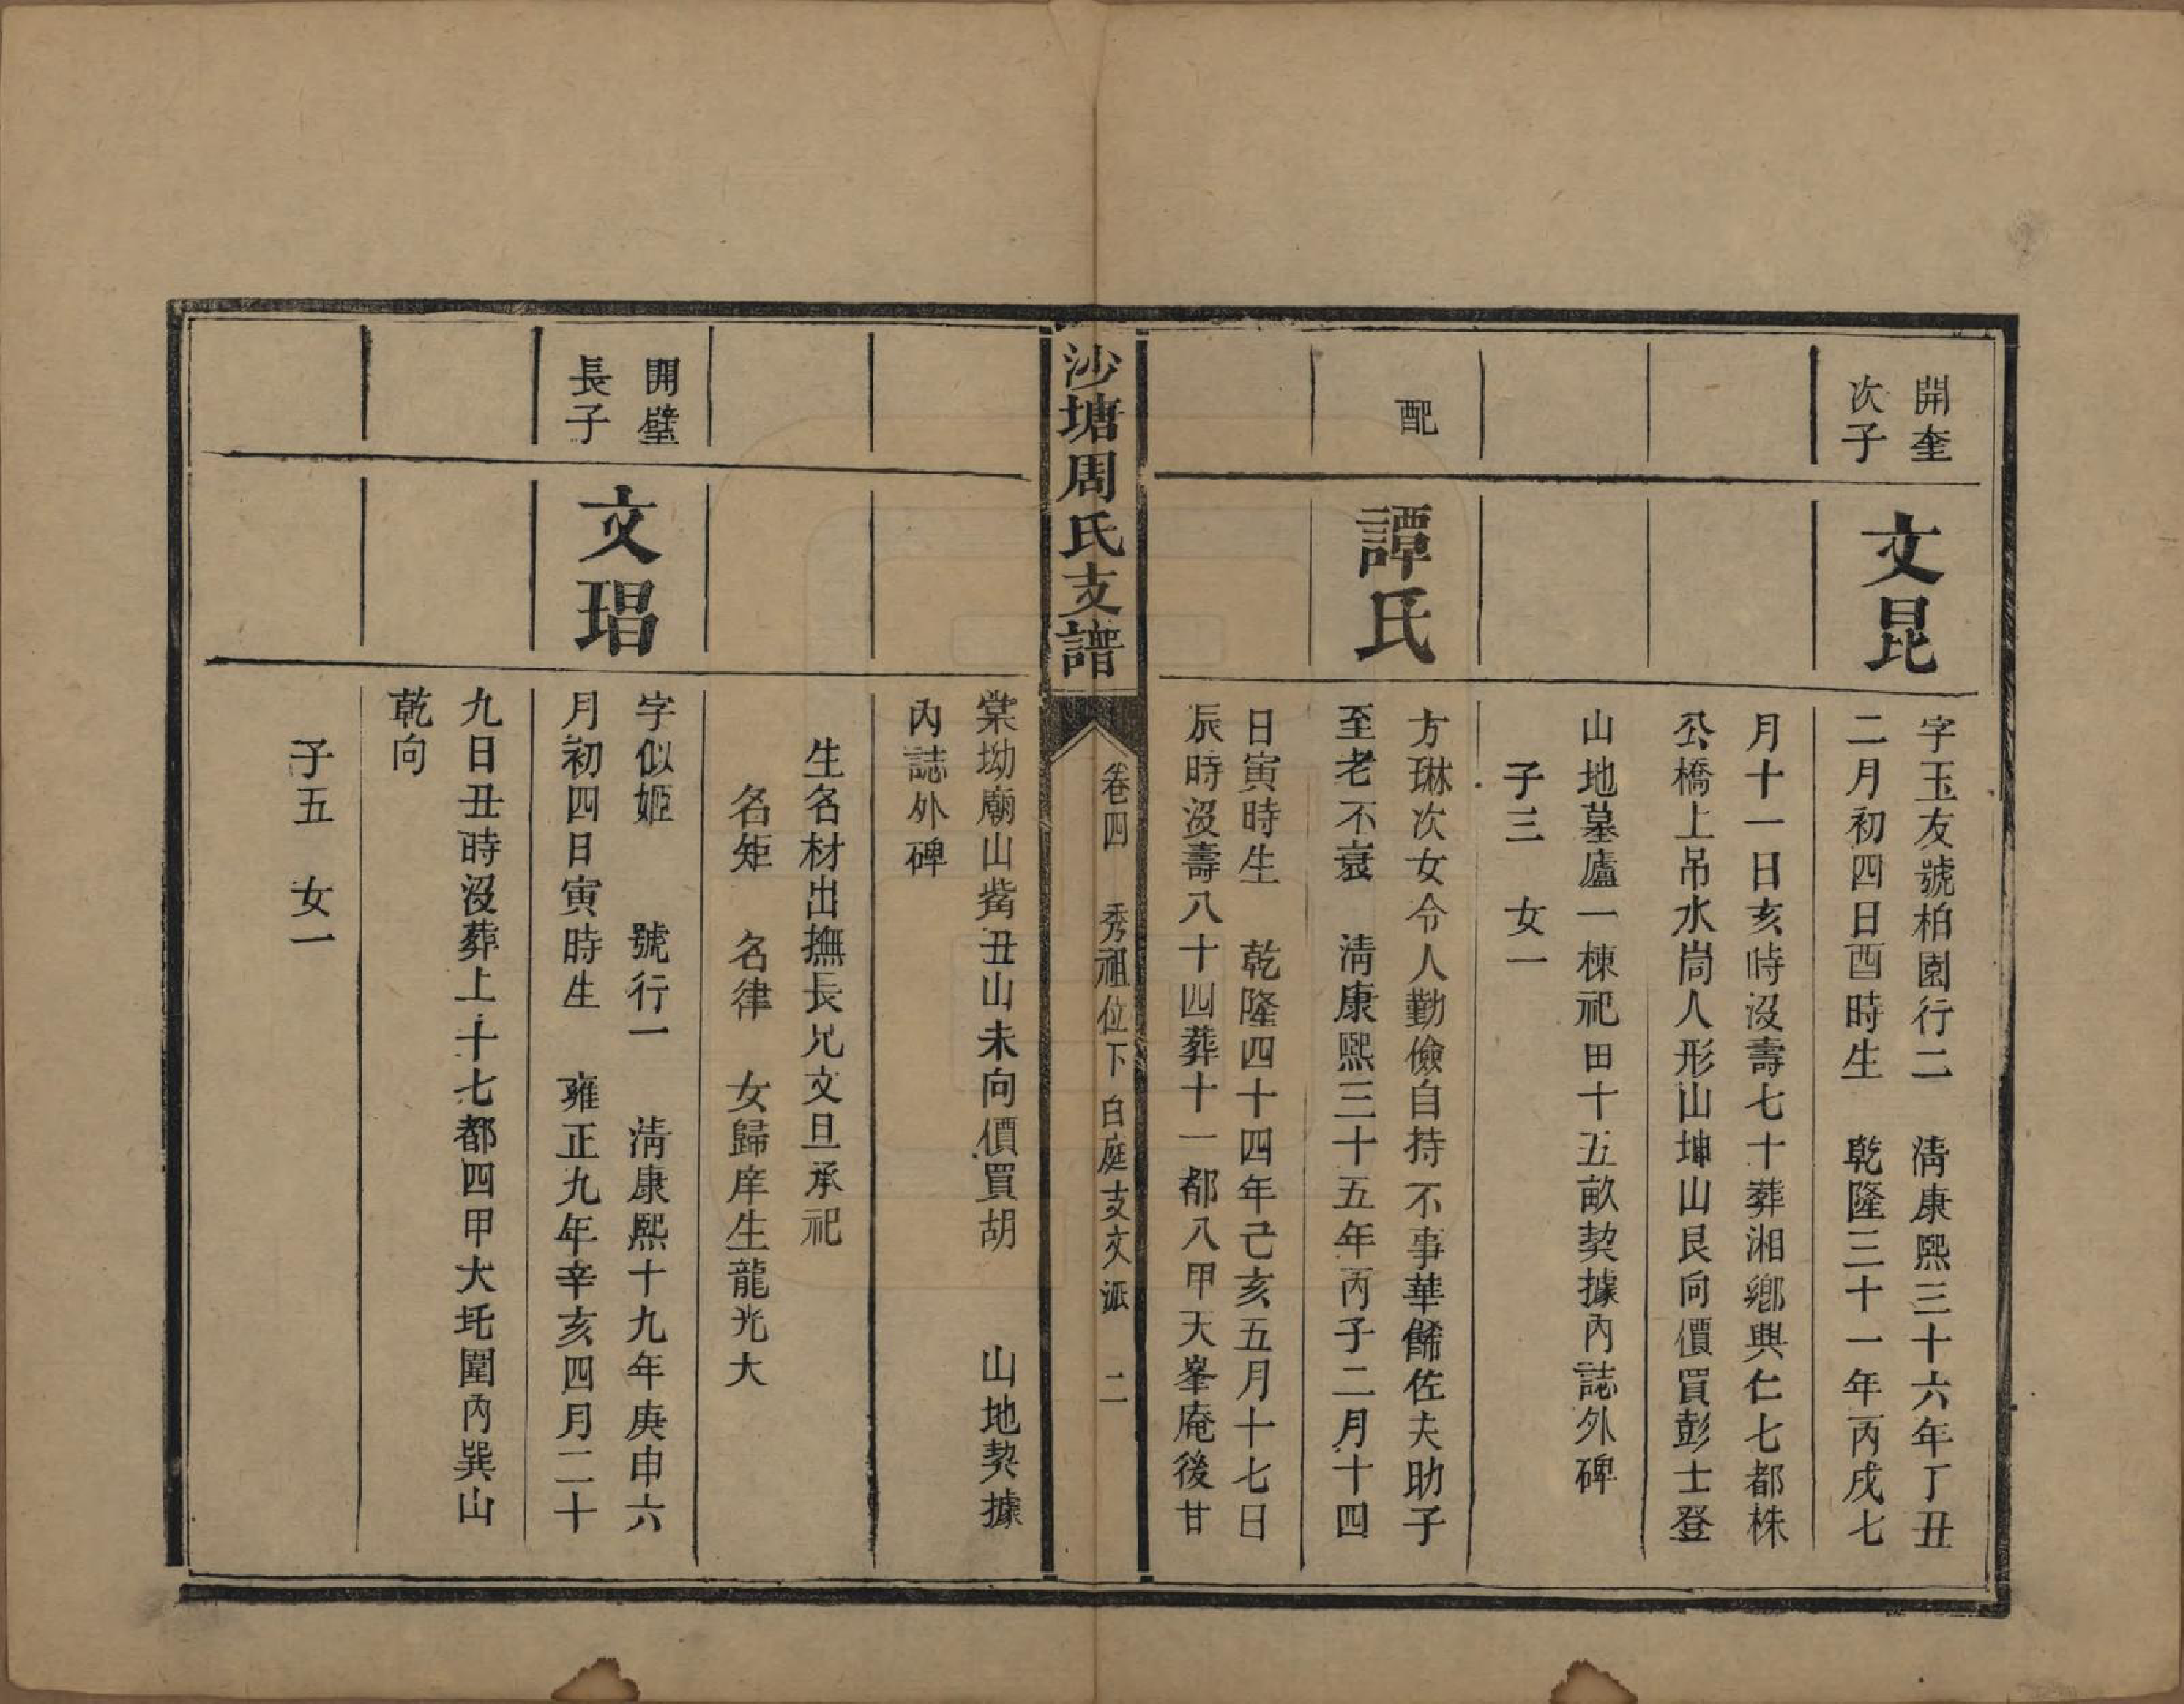 開奎
次子
文昆
字玉友號柏園行二　清康熙三十六年丁丑
二月初四日酉時生　乾隆三十一年丙戌七
月十一日亥時沒壽七十葬湘鄉興仁七都株
公橋上吊水峝人形山坤山艮向價買彭士登
山地墓廬一棟祀田十五畝契據內誌外碑
子三　女一
配
譚氏
方琳次女令人勤儉自持不事華餙佐夫助子
至老不衰　清康熙三十五年丙子二月十四
日寅時生　乾隆四十四年己亥五月十七日
辰時沒壽八十四葬十一都八甲天峯庵後甘
沙塘周氏支譜
卷四　秀祖位下白庭支文派　二
棠坳廟山觜丑山未向價買胡　　山地契據
內誌外碑
生名材出撫長兄文旦承祀
名矩　名律　女歸庠生龍光大
開璧
長子
文琩
字似姬　　號行一　清康熙十九年庚申六
月初四日寅時生　雍正九年辛亥四月二十
九日丑時沒葬上十七都四甲大圫圍內巽山
乾向
子五　女一